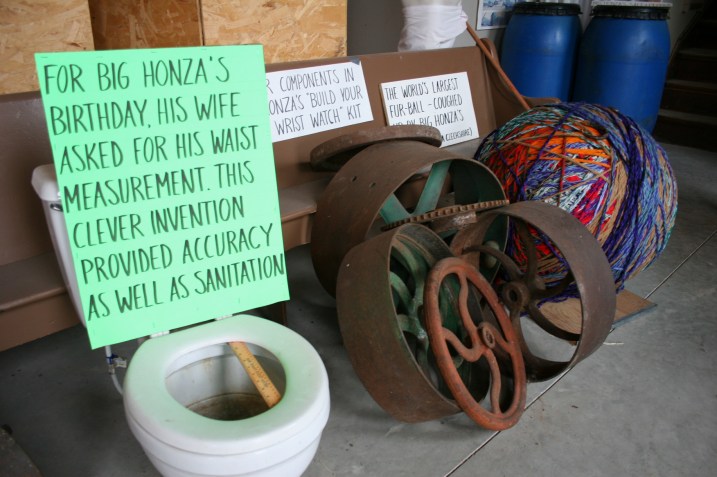 FOR BIG HONZA'S
BIRTHDAY, HIS WIFE
ASKED FOR HIS WAIST
MEASUREMENT. THIS
CLEVER INVENTION
PROVIDED ACCURACY
AS WELL AS SANITATION
COMPONENTS IN
HONZA'S "BUILD YOUR
WRIST WATCH" KIT
THE WORLD'S LARGEST
FUR-BALL - COUGHED
BY BIG HONZA'S